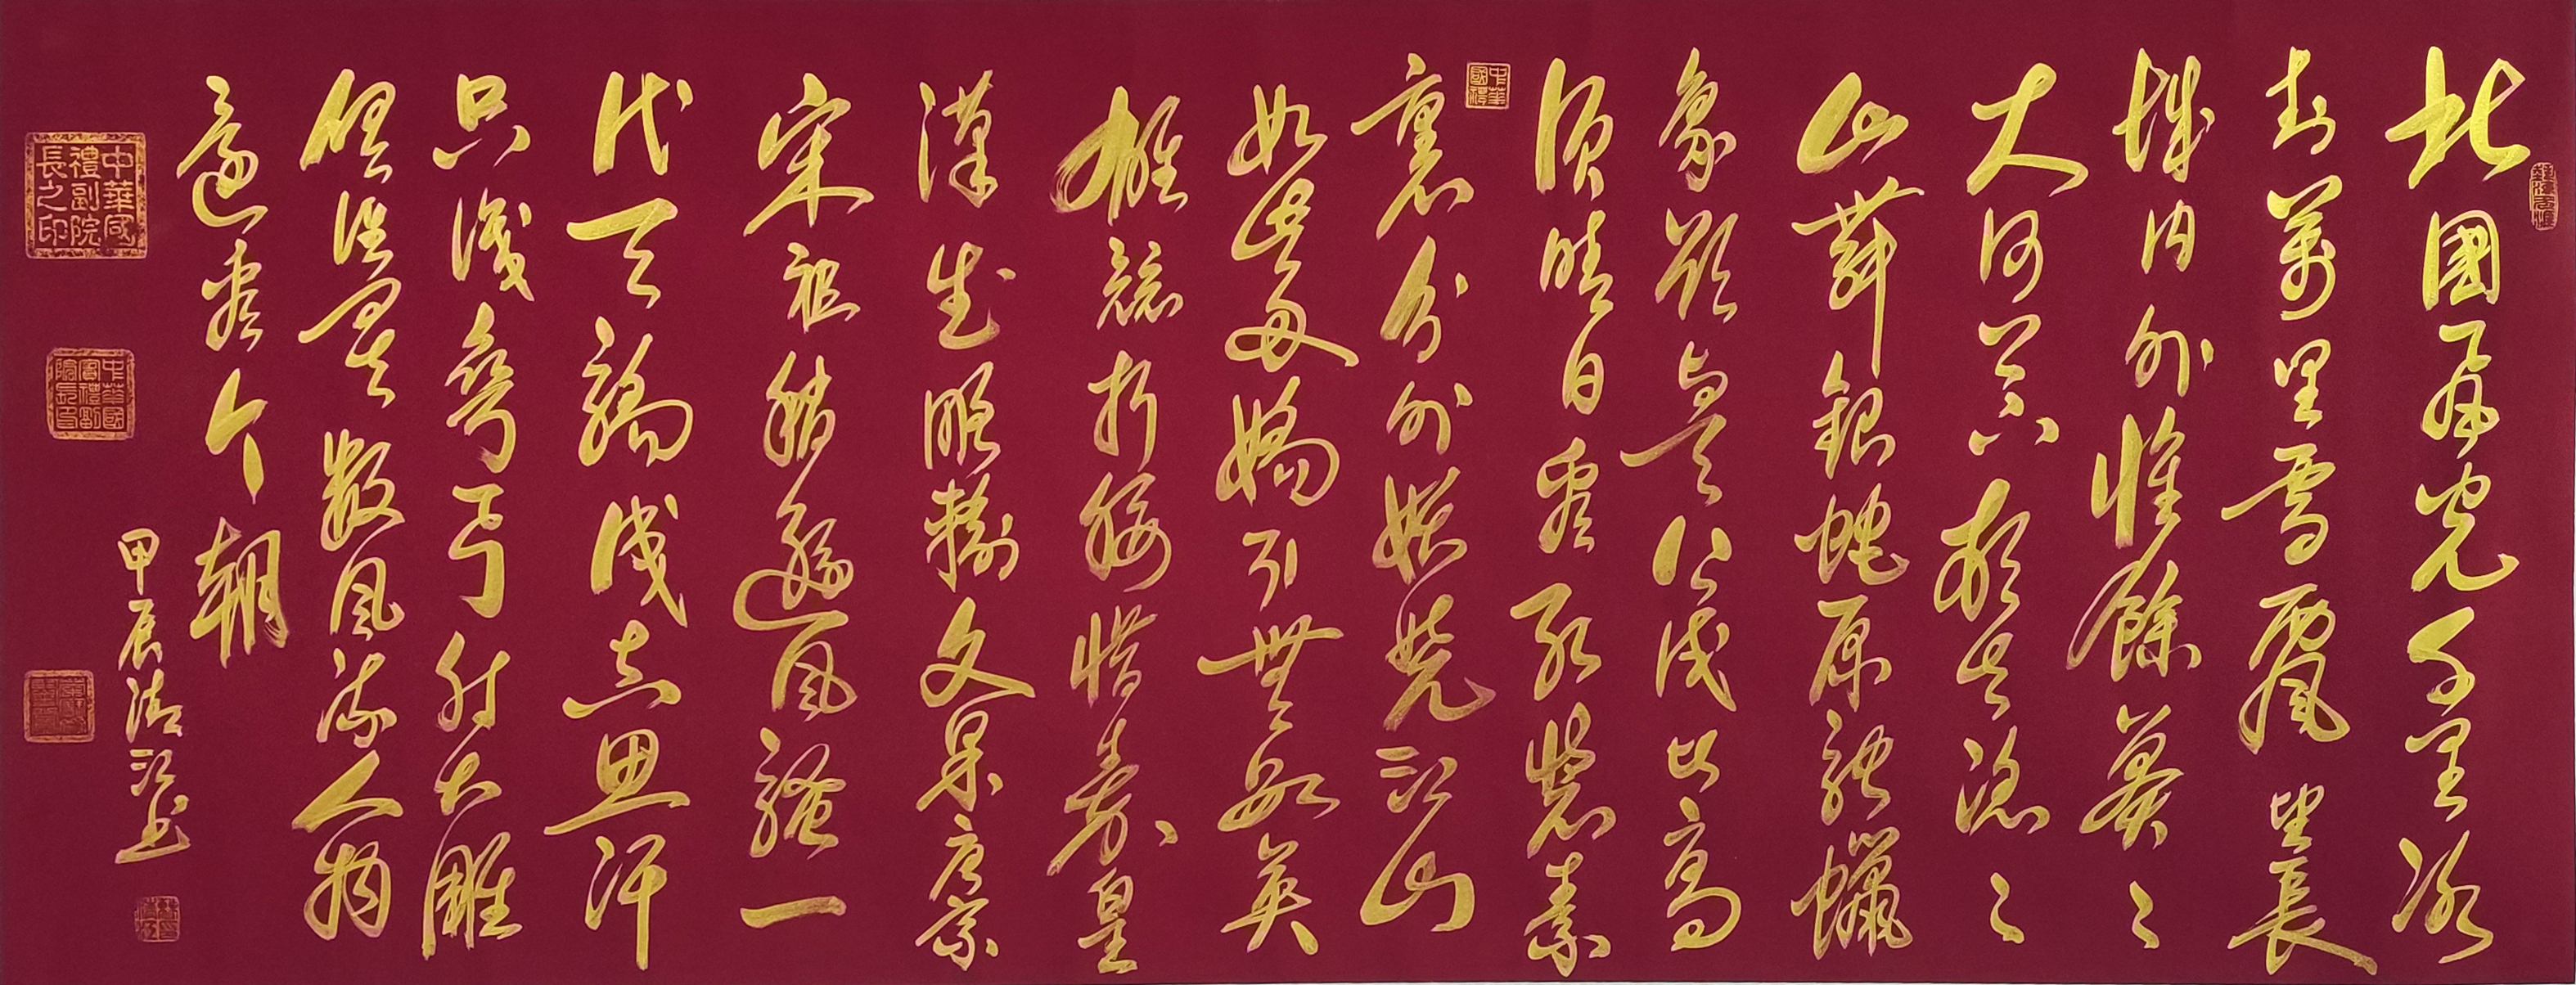 北國風光千里冰
封萬里雪飄望長
城內外惟餘莽々
大河上下頓失滔々
山舞銀蛇原馳蠟
象欲與天公試比高
須晴日看紅裝素
裹分外妖嬈江山
如此多嬌引無數英
雄競折腰惜秦皇
漢武略輸文采唐宗
宋祖稍遜風騷一
代天驕成吉思汗
只識彎弓射大雕
俱往矣數風流人物
還看今朝
甲辰 江書
中華國禮
中華國禮副院長之印